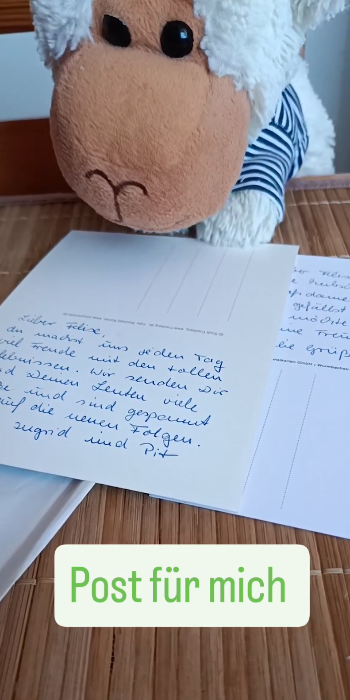 Lieber Felix,
du machst uns jeden Tag
viel Freude mit den tollen
lebnissen. Wir senden Dir
d Deinen Leuten viele
e und sind gespannt
auf die neuen Folgen.
Ingrid und Pit
ber Felix
gefällt
möchte
ne Freu
die Grüße
Post für mich